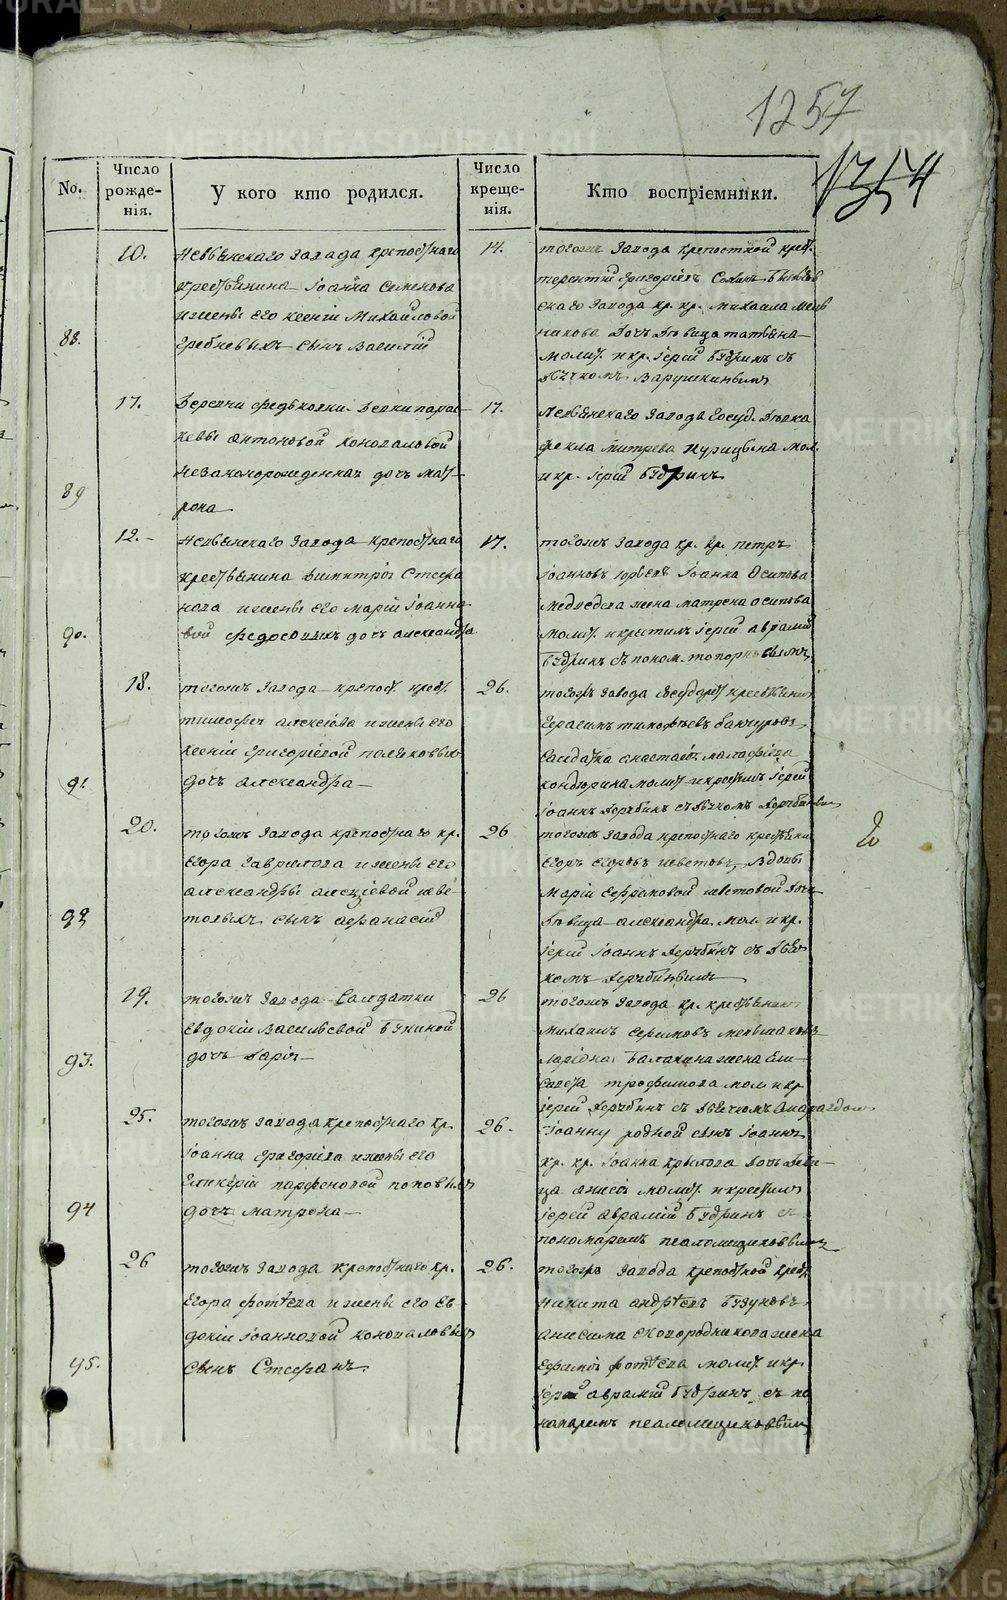 1257
1354
No.
Число рожде-нія.
У кого кто родился.
Число креще-нія.
Кто воспріемники.
88.
10.
Невьянскаго завода крепостнаго
крестьянина Іоанна Семенова
и жены его Ксеніи Михайловой
Гребневыхъ сынъ Василій
14.
тогожъ завода крепостной крест.
Терентій Григорьевъ
скаго завода кр. кр. Михаила
никова дочь девица Татьяна
молит. и кр. іерей Бударинъ съ
дьячкомъ
89
17.
Деревни Федьковки девки Парас-
кевы Антоновой Коноваловой
незаконорожденная дочь Мат-
рона
17.
Невьянскаго завода госуд. девка
Фекла Митрева Курицына мол.
и кр. іерей
90.
12.
Невьянскаго завода крепостнаго
крестьянина Димитрія Стефа
нова и жены его Маріи Іоанно
вой Федосовыхъ дочь Александра
17.
тогожъ завода кр. кр. Петръ
Іоанновъ Юрьевъ Іоанна Осипова
Медведева жена Матрена Осипова
молит. и крестилъ іерей Аврамій
съ поном. Топорковымъ
91
18.
тогожъ завода крепост. крест.
Тимофея Алексіева и жены его
Ксеніи Григоріевой Поляковыхъ
дочь Александра
26.
тогожъ завода государст. крестьянинъ
Герасимъ Тимофеевъ
салдатка Анастасія
Кондюрина молит. и крестилъ іерей
Іоаннъ съ дьячкомъ
92
20.
тогожъ завода крепостнаго кр.
Егора Гаврилова и жены его
Александры Алексіевой Шве-
товыхъ сынъ Афанасій
26
тогожъ завода крепостнаго крестьянина
Егоръ Егоровъ Шветовъ, вдовы
Маріи Ефремовой Шветовой дочь
девица Александра. мол. и кр.
іерей Іоаннъ съ дьяч
комъ
93.
19.
тогожъ завода салдатки
Евдокіи Васильевой
дочь Дарія
26
тогожъ завода кр. крестьянинъ
Михаилъ Ефимовъ
Балакина жена Ели-
савета Трофимова мол. и кр.
іерей съ дьячкомъ
94
25.
тогожъ завода крепостнаго кр.
Іоанна Григоріева и жены его
Гликеріи Парфеновой Поповыхъ
дочь Матрена
26.
Іоанну родной сынъ Іоаннъ
кр. кр. Іоанна Крылова дочь деви-
ца Анисія молит. и крестилъ
іерей Аврамій съ
пономаремъ Псаломщиковымъ
95.
26
тогожъ завода крепостнаго кр.
Егора Фотіева и жены его Ев
докіи Іоанновой Коноваловыхъ
сынъ Стефанъ
26.
тогожъ завода крепостной крест.
Никита Андреевъ Бузуновъ
Анисима Сковородникова жена
Ефимія Фотіева молит. и кр.
іерей Аврамій съ по
номаремъ Псаломщиковымъ
METRIKI.GASO-URAL.RU